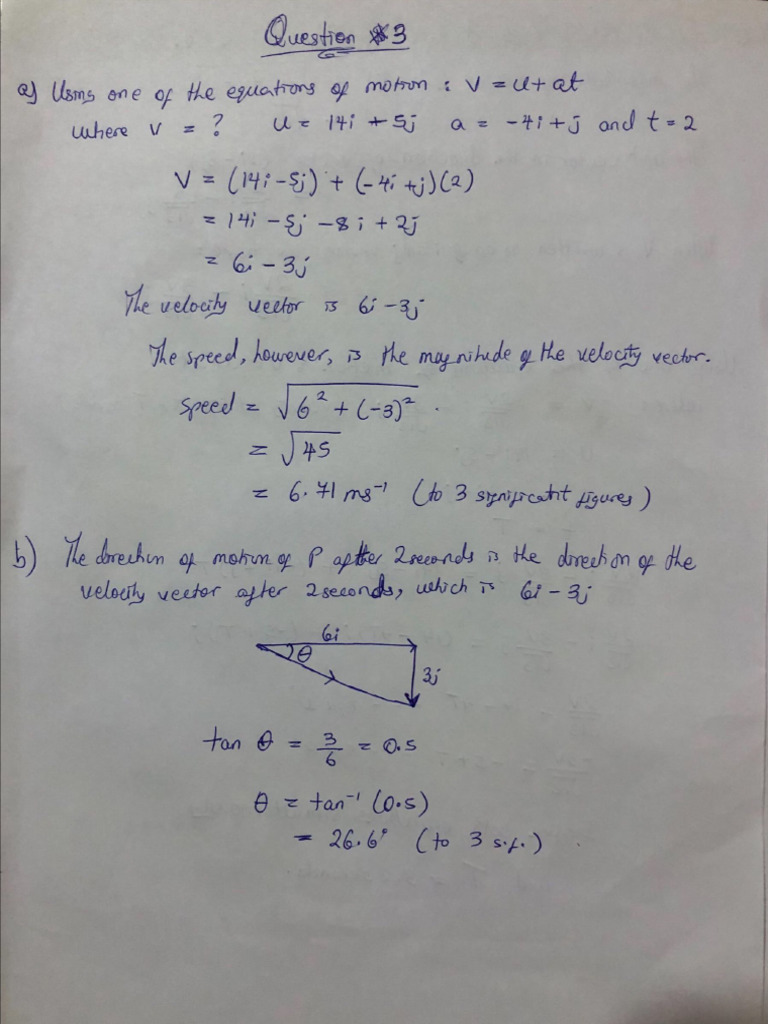 Question 3
a) Using one of the equations of motion : V = u + at
where v = ? u = 14i + 5j a = -4i + j and t = 2
V = (14i - 5j) + (-4i + j)(2)
= 14i - 5j - 8i + 2j
= 6i - 3j
The velocity vector is 6i - 3j
The speed, however, is the magnitude of the velocity vector.
Speed = √6² + (-3)²
= √45
= 6.71 ms⁻¹ (to 3 significant figures)
b) The direction of motion of P after 2seconds is the direction of the
velocity vector after 2seconds, which is 6i - 3j
6i
θ
3j
tan θ = 3/6 = 0.5
θ = tan⁻¹ (0.5)
= 26.6° (to 3 s.f.)